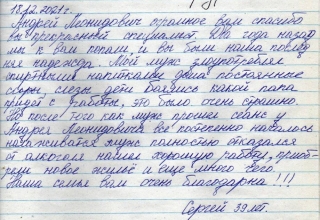 18.12.2021г.
Андрей Леонидович огромное вам спасибо
вы прекрасный специалист. Два года назад
мы к вам попали, и вы были наша послед
няя надежда. Мой муж злоупотреблял
спиртными напитками дома постоянные
ссоры, слезы дети боялись какой папа
придет с работы, это было очень страшно.
Но после того как муж прошел сеанс у
Андрея Леонидовича все постепенно началось
налаживатся муж полностью отказался
от алкоголя нашел хорошую работу, приоб-
рели новое жильё и еще много чего.
Наша семья вам очень благодарна!!!
Сергей 39 лет.